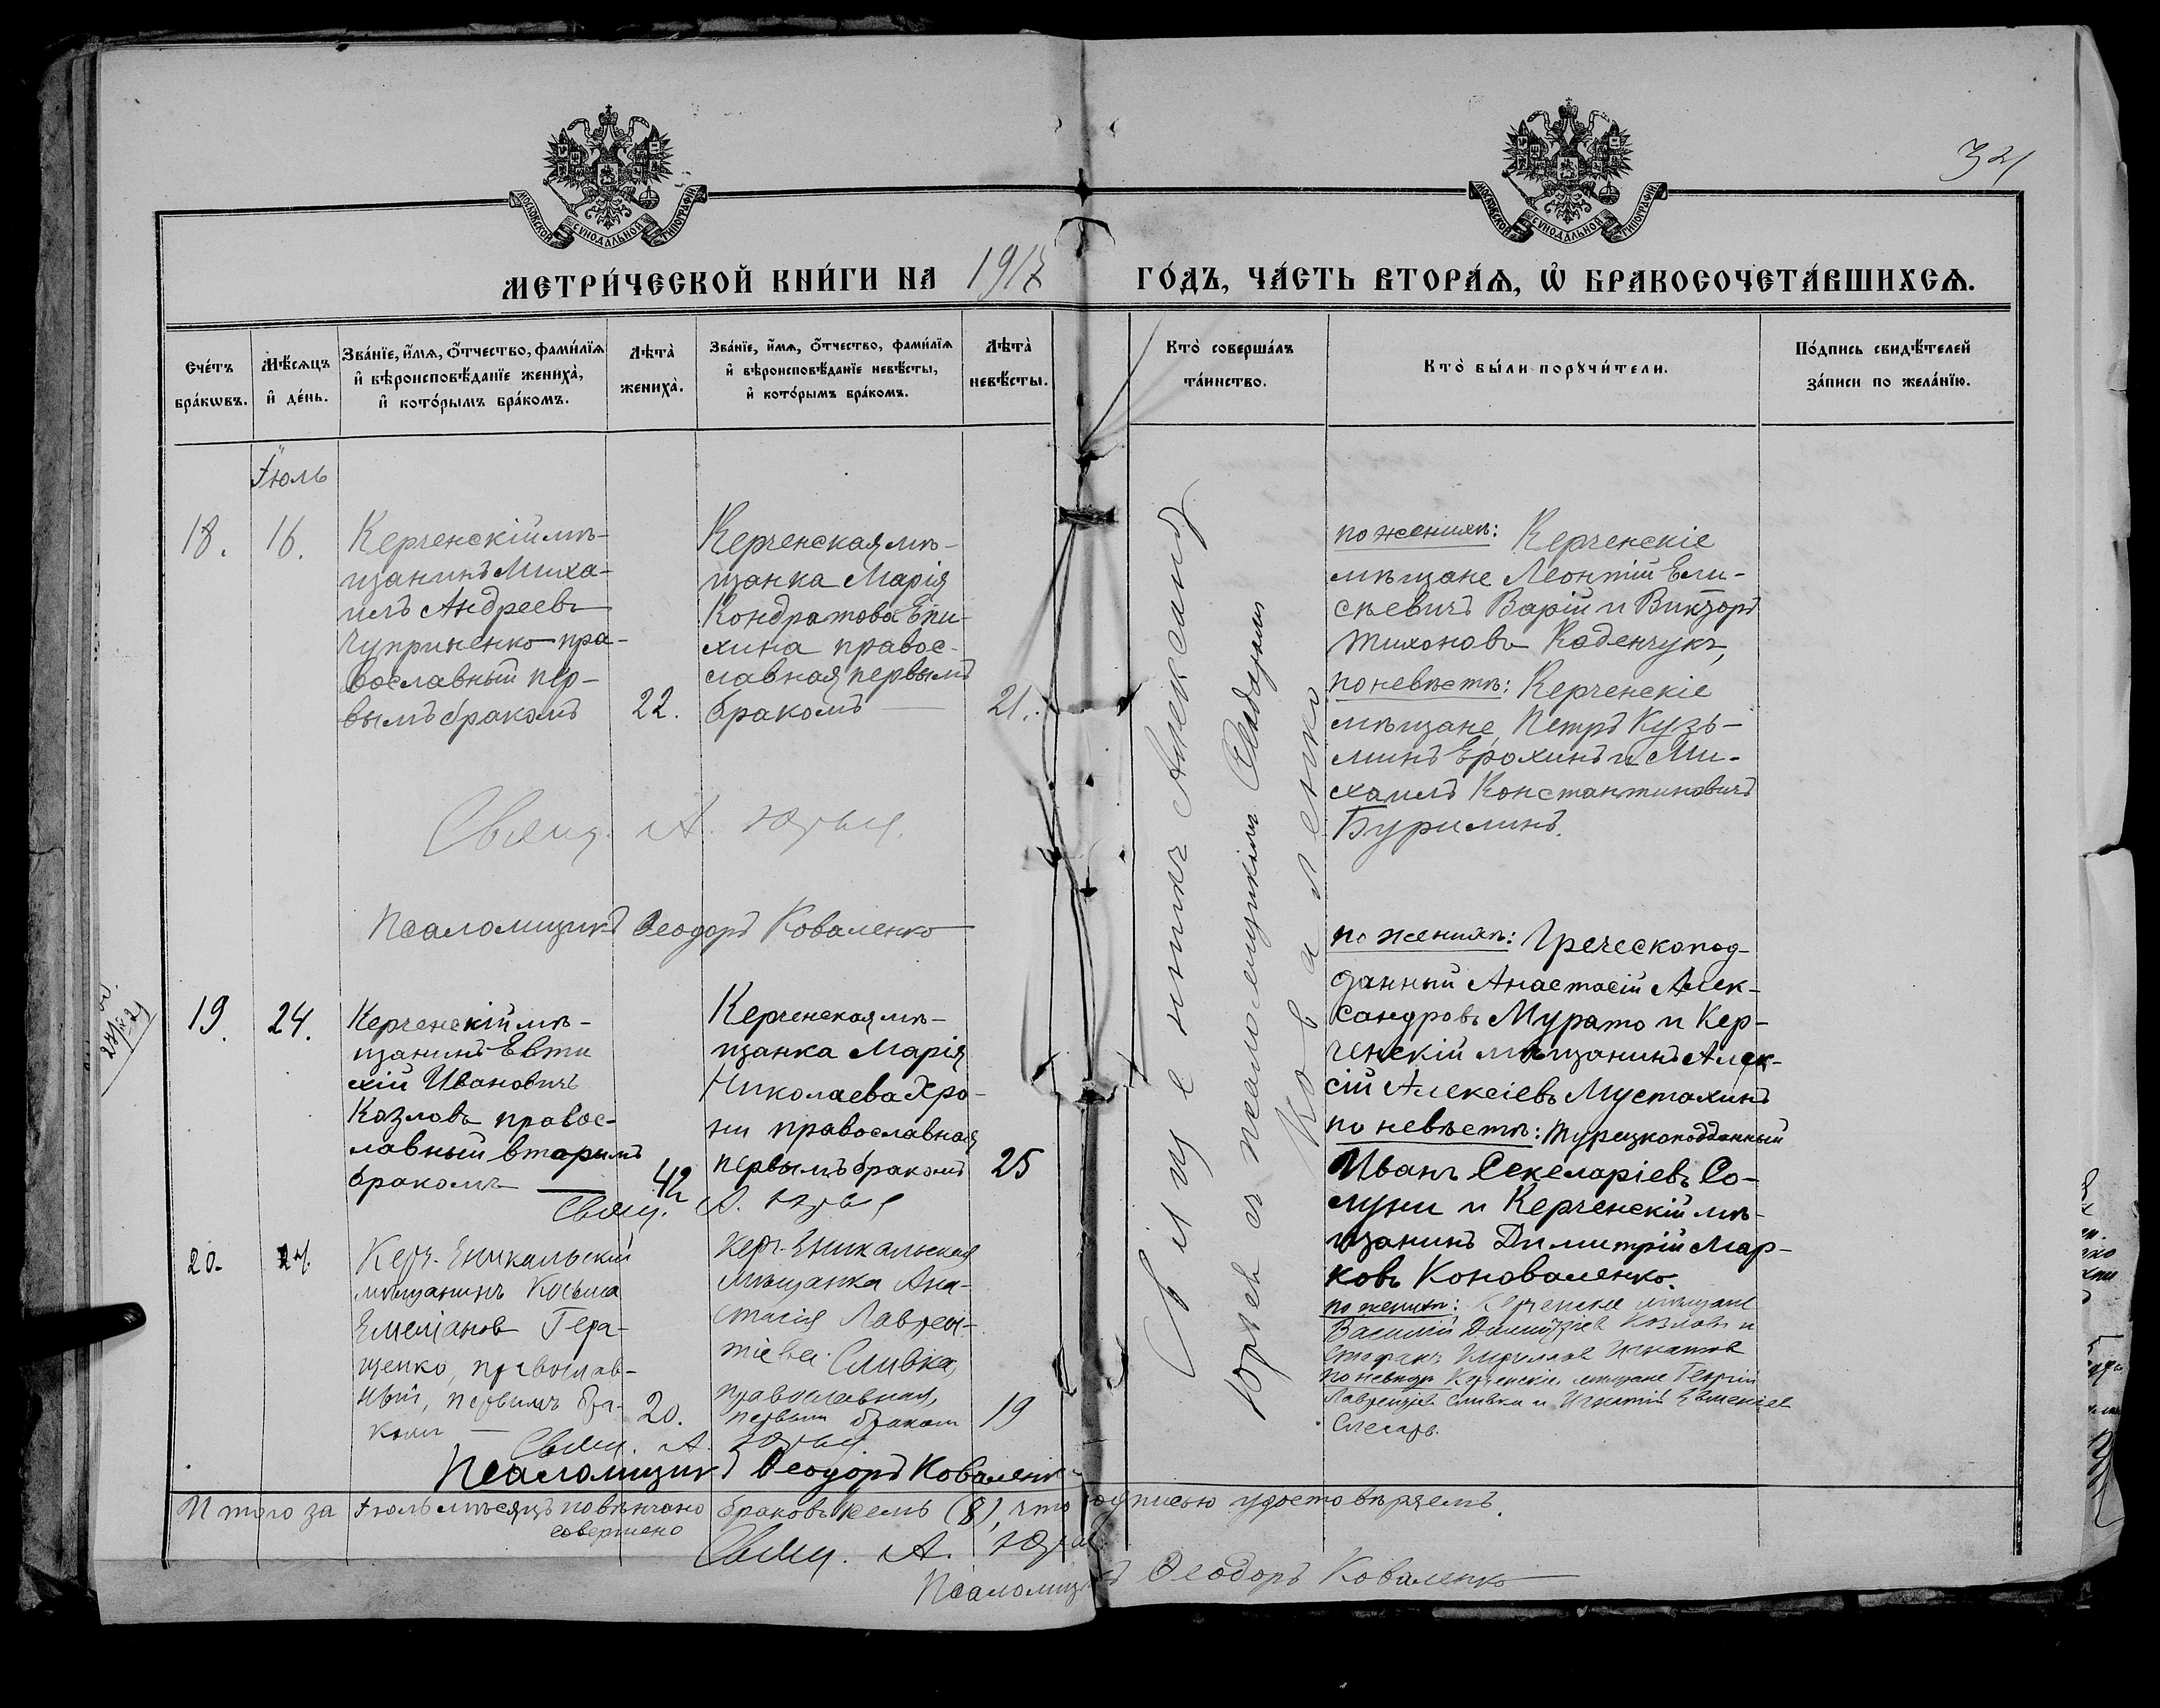 321
МОСКОВСКОЙ СѴНОДАЛЬНОЙ ТИПОГРАФІИ
МОСКОВСКОЙ СѴНОДАЛЬНОЙ ТИПОГРАФІИ
МЕТРИ́ЧЕСКОЙ КНИ́ГИ НА 1917 ГО́ДЪ, ЧА́СТЬ ВТОРА́Ѧ, Ѽ БРАКОСОЧЕТА́ВШИХСѦ.
Сче́тъ
бра́кωвъ.
Мѣ́сѧцъ
и҆ де́нь.
Зва́нїе, и҆́мѧ, ѻ҆́тчество, фами́лїѧ
и҆ вѣроисповѣ́данїе жениха̀,
и҆ кото́рымъ бра́комъ.
Лѣта̀
жениха̀.
Зва́нїе, и҆́мѧ, ѻ҆́тчество, фами́лїѧ
и҆ вѣроисповѣ́данїе невѣ́сты,
и҆ кото́рымъ бра́комъ.
Лѣта̀
невѣ́сты.
Кто̀ соверша́лъ
та́инство.
Кто̀ бы́ли порꙋчи́тели.
По́дпись свидѣ́телей
за́писи по жела́нїю.
Іюль
18.
16.
Керченскій мѣ-
щанинъ Миха-
илъ Андреевъ
Чуприненко пра-
вославный пер-
вымъ бракомъ
22.
Керченская мѣ-
щанка Марія
Кондратова Епи-
хина правос-
славная первымъ
бракомъ
21.
по женихѣ: Керченскіе
мѣщане Леонтій Ели-
сѣевичъ Варій и Викторъ
Тихоновъ Каденчукъ,
по невѣстѣ: Керченскіе
мѣщане, Петръ Кузь-
минъ Ерохинъ и Ми-
хаилъ Константиновичъ
Бурилинъ.
Свящ. А. Юрьев
Псаломщикъ Ѳеодоръ Коваленко
Священникъ Александр
Юрьев съ псаломщикомъ Ѳеодоромъ
Коваленко
19.
24.
Керченскій мѣ-
щанинъ Евти
хій Ивановичъ
Козловъ правос-
лавный вторымъ
бракомъ
42
Керченская мѣ-
щанка Марія
Николаева Хро-
ни православная
первымъ бракомъ
25
по женихѣ: Греческопод-
данный Анастасій Алек-
сандровъ Мурато и Кер-
ченскій мѣщанинъ Алек-
сій Алексіевъ Мустахинъ
по невѣстѣ: турецкоподданный
Иванъ Секеларіевъ Со-
луни и Керченскій мѣ-
щанинъ Димитрій Мар-
ковъ Коноваленко.
Свящ. А. Юрьев
20.
27.
Керч.-Еникальскій
мѣщанинъ Косьма
Емельянов Гера-
щенко, православ-
ный, первымъ бра-
комъ
20.
Керч.-Еникальская
мѣщанка Ана-
стасія Лаврен-
тіева Сливка,
православная,
первым браком
19
по женихѣ: Керченскіе мѣщане
Василій Димитріев Козловъ и
Стефанъ Кириллов Игнатов
по невѣстѣ Керченскіе мѣщане Георгій
Лаврентіев Сливка и Игнатій Евменіев
Слесарь.
Свящ. А. Юрьев
Псаломщикъ Ѳеодоръ Коваленко
Итого за Іюль мѣсяцъ повѣнчано браковъ (8), что подписью удостовѣряемъ.
совершено
Свящ. А. Юрьев
Псаломщикъ Ѳеодоръ Коваленко